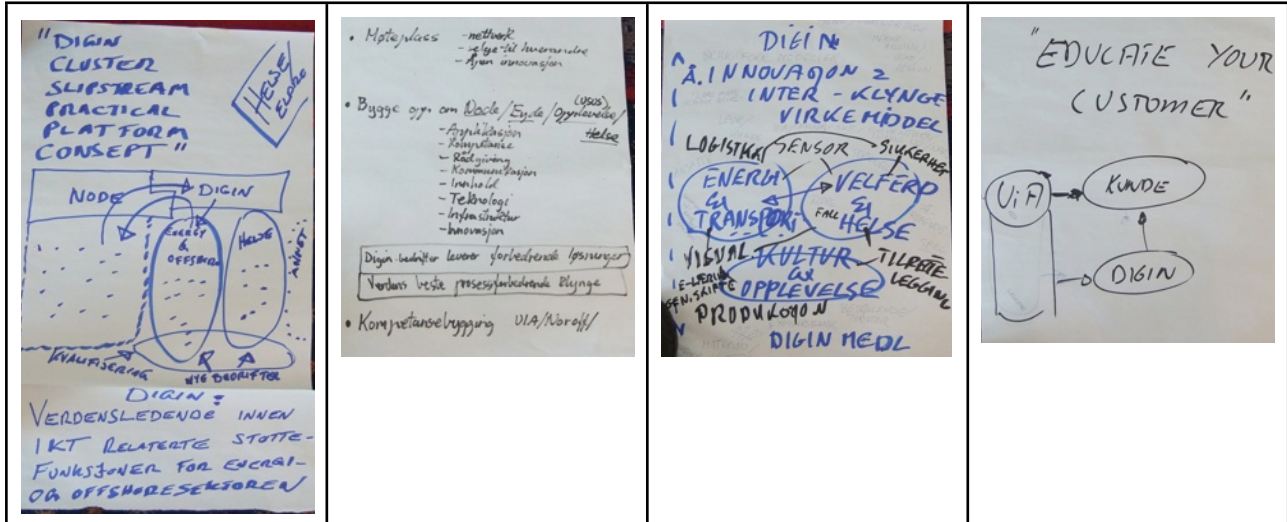 "DIGIN
CLUSTER
SLIPSTREAM
PRACTICAL
PLATFORM
CONSEPT"
HELSE
ELDRE
NODE
DIGIN
ENERGY
&
OFFSHORE
HELSE
ANNET
KVALIFISERING
NYE BEDRIFTER
DIGIN:
VERDENSLEDENDE INNEN
IKT RELATERTE STØTTE-
FUNKSJONER FOR ENERGI-
OG OFFSHORESEKTOREN
• Møteplass - nettverk
- selge til hverandre
- Åpen innovasjon
(USUS)
• Bygge opp om Node/Eyde/Opplevelse/
Helse
- Applikasjon
- Kompetanse
- Rådgiving
- Kommunikasjon
- Innhold
- Teknologi
- Infrastruktur
- Innovasjon
Digin bedrifter leverer forbedrende løsninger
Verdens beste prosessforbedrende klynge
• Kompetansebygging UIA/Noroff/
DIGIN
Å. INNOVASJON 2
INTER-KLYNGE
VIRKEMIDDEL
LOGISTKK SENSOR SIKKERHET
ENERGI
&
TRANSPORT
VELFERD
&
HELSE
FALL
VISUAL.
KULTUR
&
OPPLEVELSE
TILRETTE
LEGGING
E-LÆRING
GEN.SKIFTE
PRODUKSJON
DIGIN MEDL
"EDUCATE YOUR
CUSTOMER"
UiA
KUNDE
DIGIN